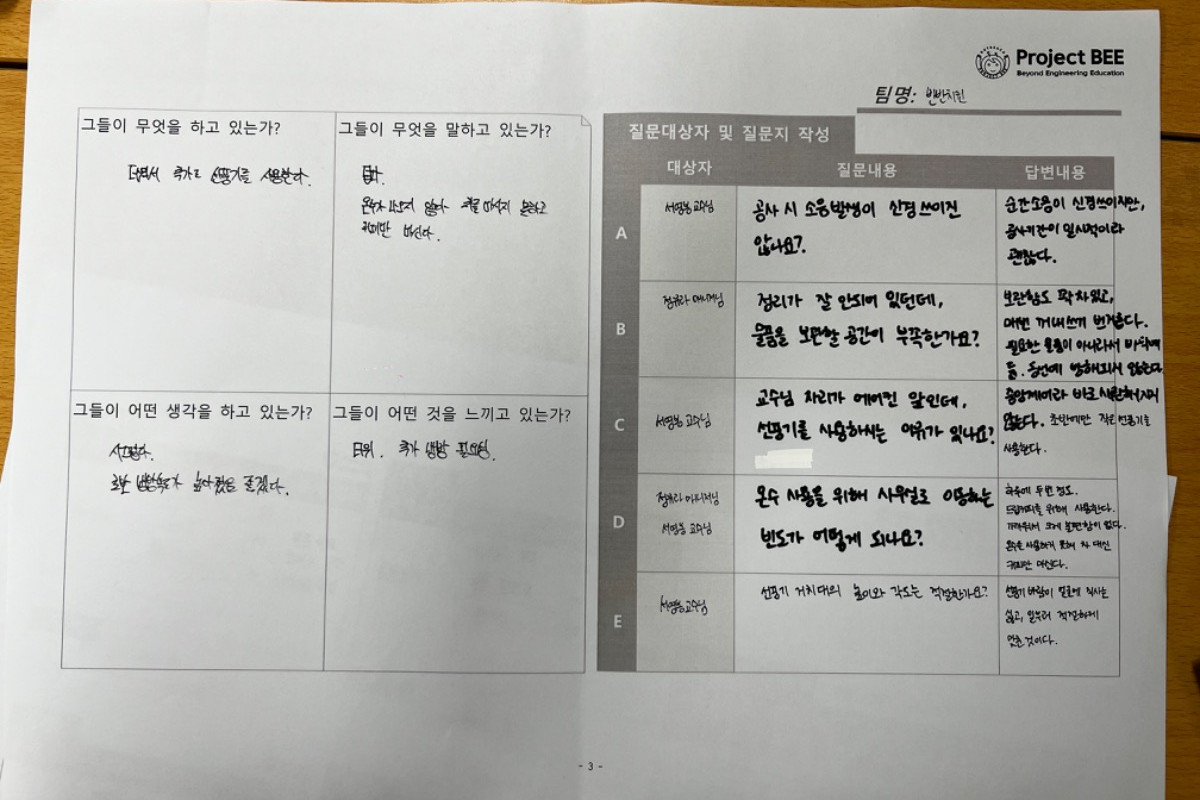 Project BEE
Beyond Engineering Education
팀명: 반반치킨
그들이 무엇을 하고 있는가?
더워서 추가로 선풍기를 사용한다.
그들이 무엇을 말하고 있는가?
덥다.
온수가 나오지 않는다 차를 마시지 못하고
커피만 마신다.
그들이 어떤 생각을 하고 있는가?
시원하다.
냉방
좋겠다.
그들이 어떤 것을 느끼고 있는가?
더위. 추가 냉방 필요성.
질문대상자 및 질문지 작성
대상자
질문내용
답변내용
A
서영봉 교수님
공사 시 소음발생이 신경 쓰이진
않나요?
순간소음이 신경쓰이지만,
공사기간이 일시적이라
괜찮다.
B
매니저님
정리가 잘 안되어 있던데,
물품을 보관할 공간이 부족한가요?
보관함도 꽉 차있고,
매번 꺼내쓰기 번거롭다.
필요한 물품이 아니라서 바닥에
둠. 동선에 방해되지 않는다
C
서영봉 교수님
교수님 자리가 에어컨 앞인데,
선풍기를 사용하시는 이유가 있나요?
중앙제어라 바로 시원해지지
않는다. 초반에만 작은 선풍기를
사용한다.
D
매니저님
서영봉 교수님
온수 사용을 위해 사무실로 이동하는
빈도가 어떻게 되나요?
하루에 두번 정도.
드립커피를 위해 사용한다.
가까워서 크게 불편함이 없다.
온수를 사용하지 못해 차 대신
커피만 마신다.
E
서영봉 교수님
선풍기 거치대의 높이와 각도는 적절한가요?
선풍기 바람이 얼굴에 직사는
싫고, 일부러 적절하게
맞춘 것이다.
- 3 -